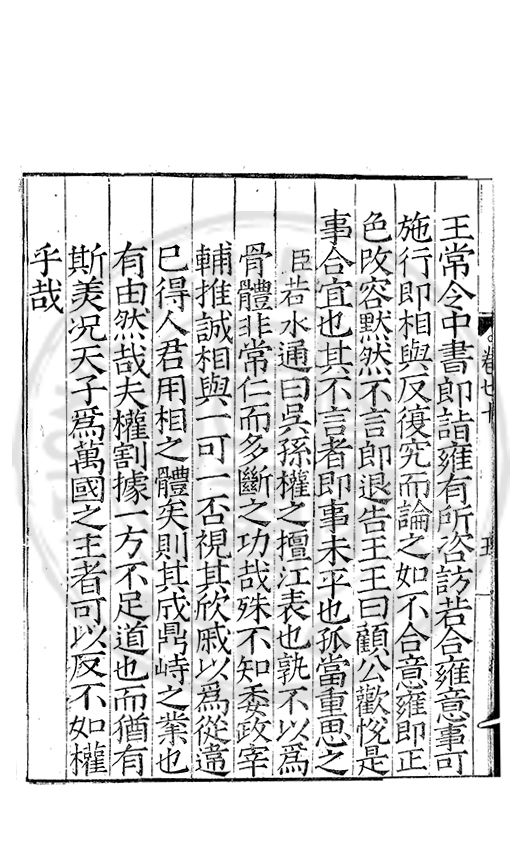 王常令中書郎詣雍有所咨訪若合雍意事可
施行即相與反復究而論之如不合意雍即正
色改容默然不言郎退告王王曰顧公歡悅是
事合宜也其不言者即事未平也孤當重思之
臣若水通曰吳孫權之擅江表也孰不以爲
骨體非常仁而多斷之功哉殊不知委政宰
輔推誠相與一可一否視其欣戚以爲從違
已得人君用相之體矣則其成鼎峙之業也
有由然哉夫權割據一方不足道也而猶有
斯美況天子爲萬國之主者可以反不如權
乎哉